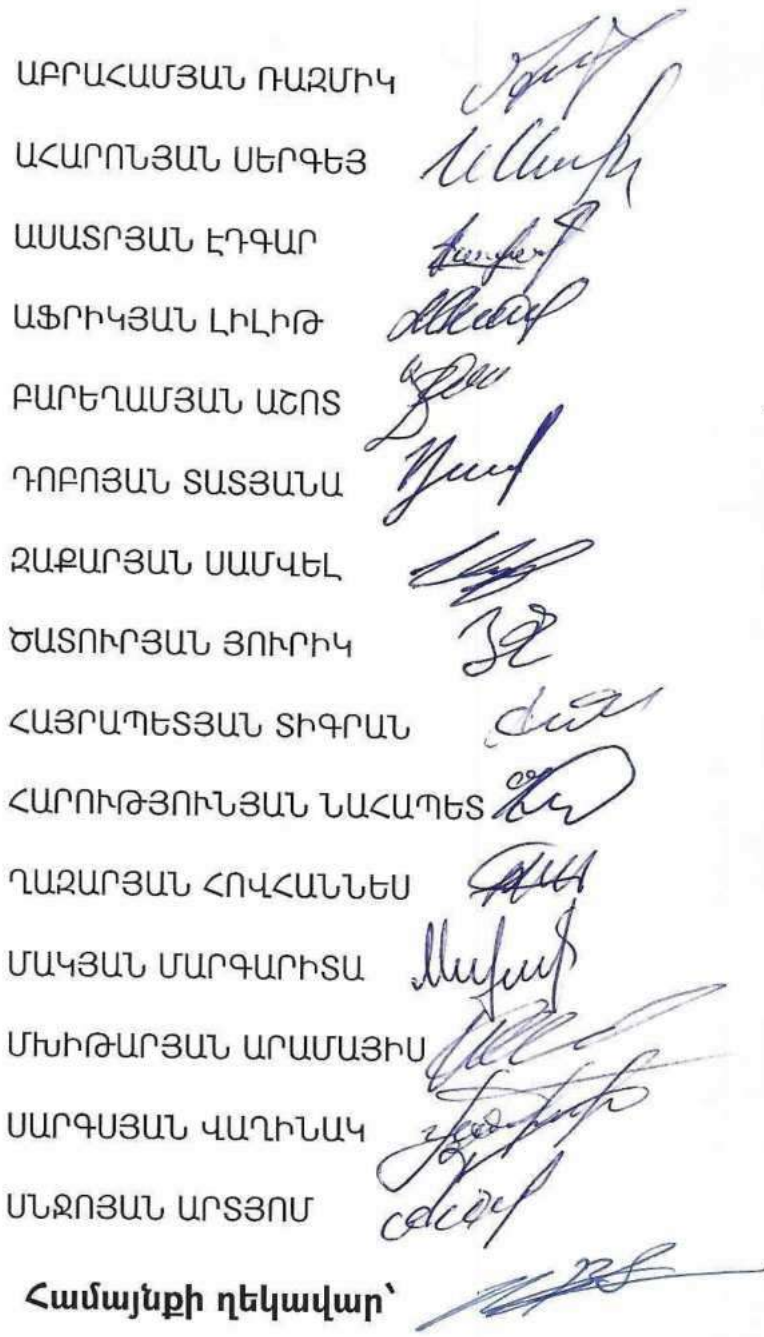 ԱԲՐԱՀԱՄՅԱՆ ՌԱԶՄԻԿ
ԱՀԱՐՈՆՅԱՆ ՍԵՐԳԵՅ
ԱՍԱՏՐՅԱՆ ԷԴԳԱՐ
ԱՖՐԻԿՅԱՆ ԼԻԼԻԹ
ԲԱՐԵՂԱՄՅԱՆ ԱՇՈՏ
ԴՈԲՈՅԱՆ ՏԱՏՅԱՆԱ
ԶԱՔԱՐՅԱՆ ՍԱՄՎԵԼ
ԾԱՏՈՒՐՅԱՆ ՅՈՒՐԻԿ
ՀԱՅՐԱՊԵՏՅԱՆ ՏԻԳՐԱՆ
ՀԱՐՈՒԹՅՈՒՆՅԱՆ ՆԱՀԱՊԵՏ
ՂԱԶԱՐՅԱՆ ՀՈՎՀԱՆՆԵՍ
ՄԱԿՅԱՆ ՄԱՐԳԱՐԻՏԱ
ՄԽԻԹԱՐՅԱՆ ԱՐԱՄԱՅԻՍ
ՍԱՐԳՍՅԱՆ ՎԱՂԻՆԱԿ
ՍՆՋՈՅԱՆ ԱՐՏՅՈՄ
Համայնքի ղեկավար՝